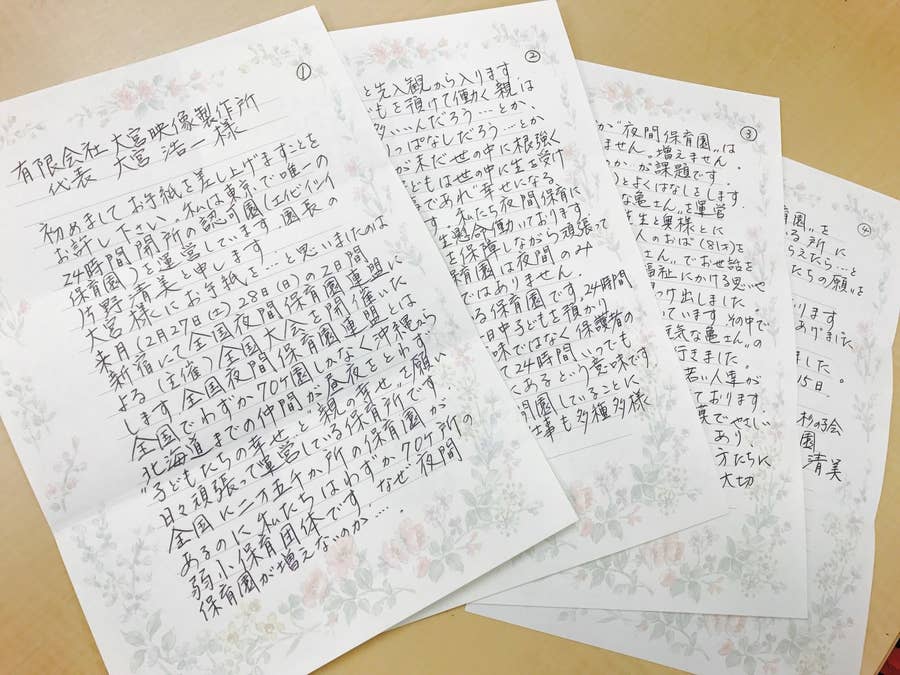 ①
有限会社 大宮映像製作所
代表 大宮 浩一様
初めまして お手紙を差し上げますことを
お許し下さい。私は東京で唯一の
24時間開所の認可園(エイビイシイ
保育園)を運営しています。園長の
片野清美と申します。
大宮様にお手紙を…と思いましたのは
来月(2月27日(土)28日(日)の2日間
新宿にて全国夜間保育園連盟に
よる(主催)全国大会を開催いた
します。全国夜間保育園連盟とは
全国でわずか70ヶ園しかなく沖縄から
北海道までの仲間が昼夜をとわず
"子どもたちの幸せと、親の幸せ"を願い
日々頑張って運営している保育所です。
全国に二万五千か所の保育園が
あるのに私たちはわずか70ヶ所の
弱小保育団体です。なぜ夜間
保育園が増えないのか…。
②
と先入観から入ります
もを預けて働く親は
多い…んだろう…とか、
っぱなしだろう…とか
が未だ世の中に根強く
どもは世の中に生を受け
であれ"幸せになる
す。私たち夜間保育に
生懸命働いております
を保障しながら頑張って
育園は夜間のみ
ではありません。
る保育園です。
日中子どもを預かり
味ではなく保護者の
て24時間といっても
くあるという意味です
開園していることに
事も多種多様
③
が"夜間保育園"は
ません。増えません
のか が課題です。
)とよくはなしをします。
な亀さん"を運営
生と奥様とに
人のおば(81才)を
"でお世話を
福祉にかける思いや
つけ出しました
っています。その中で
気な亀さん"の
行きました
若い人達が
ております。
葉でやさしい
あり、
方たちに
大切
④
育園"を
る所に
らえたら…と
たちの願"を
ります
ありました
ました。
15日。
杉の子会
園
清美